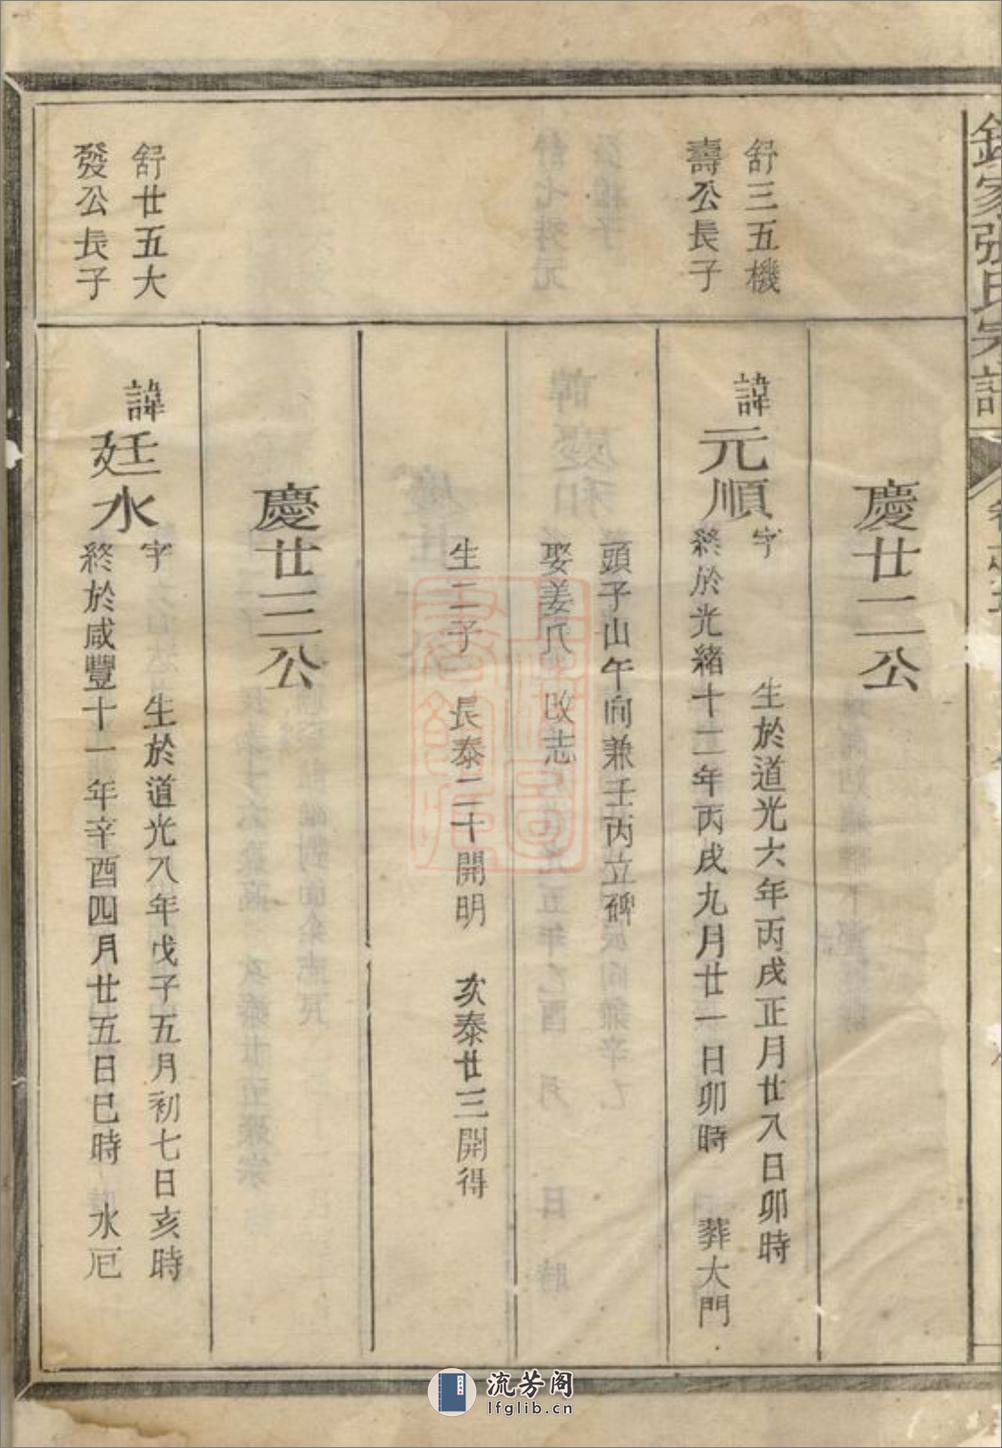 張氏宗譜
慶廿二公
舒三五機
壽公長子
諱元順
字 生於道光六年丙戌正月廿八日卯時
終於光緒十二年丙戌九月廿一日卯時 葬大門
頭子山午向兼壬丙立碑
娶姜氏 改志
生二子 長泰二十開明 次泰廿三開得
慶廿三公
舒廿五大
發公長子
諱廷水
字 生於道光八年戊子五月初七日亥時
終於咸豐十一年辛酉四月廿五日巳時 水厄
流芳阁
lfglib.cn